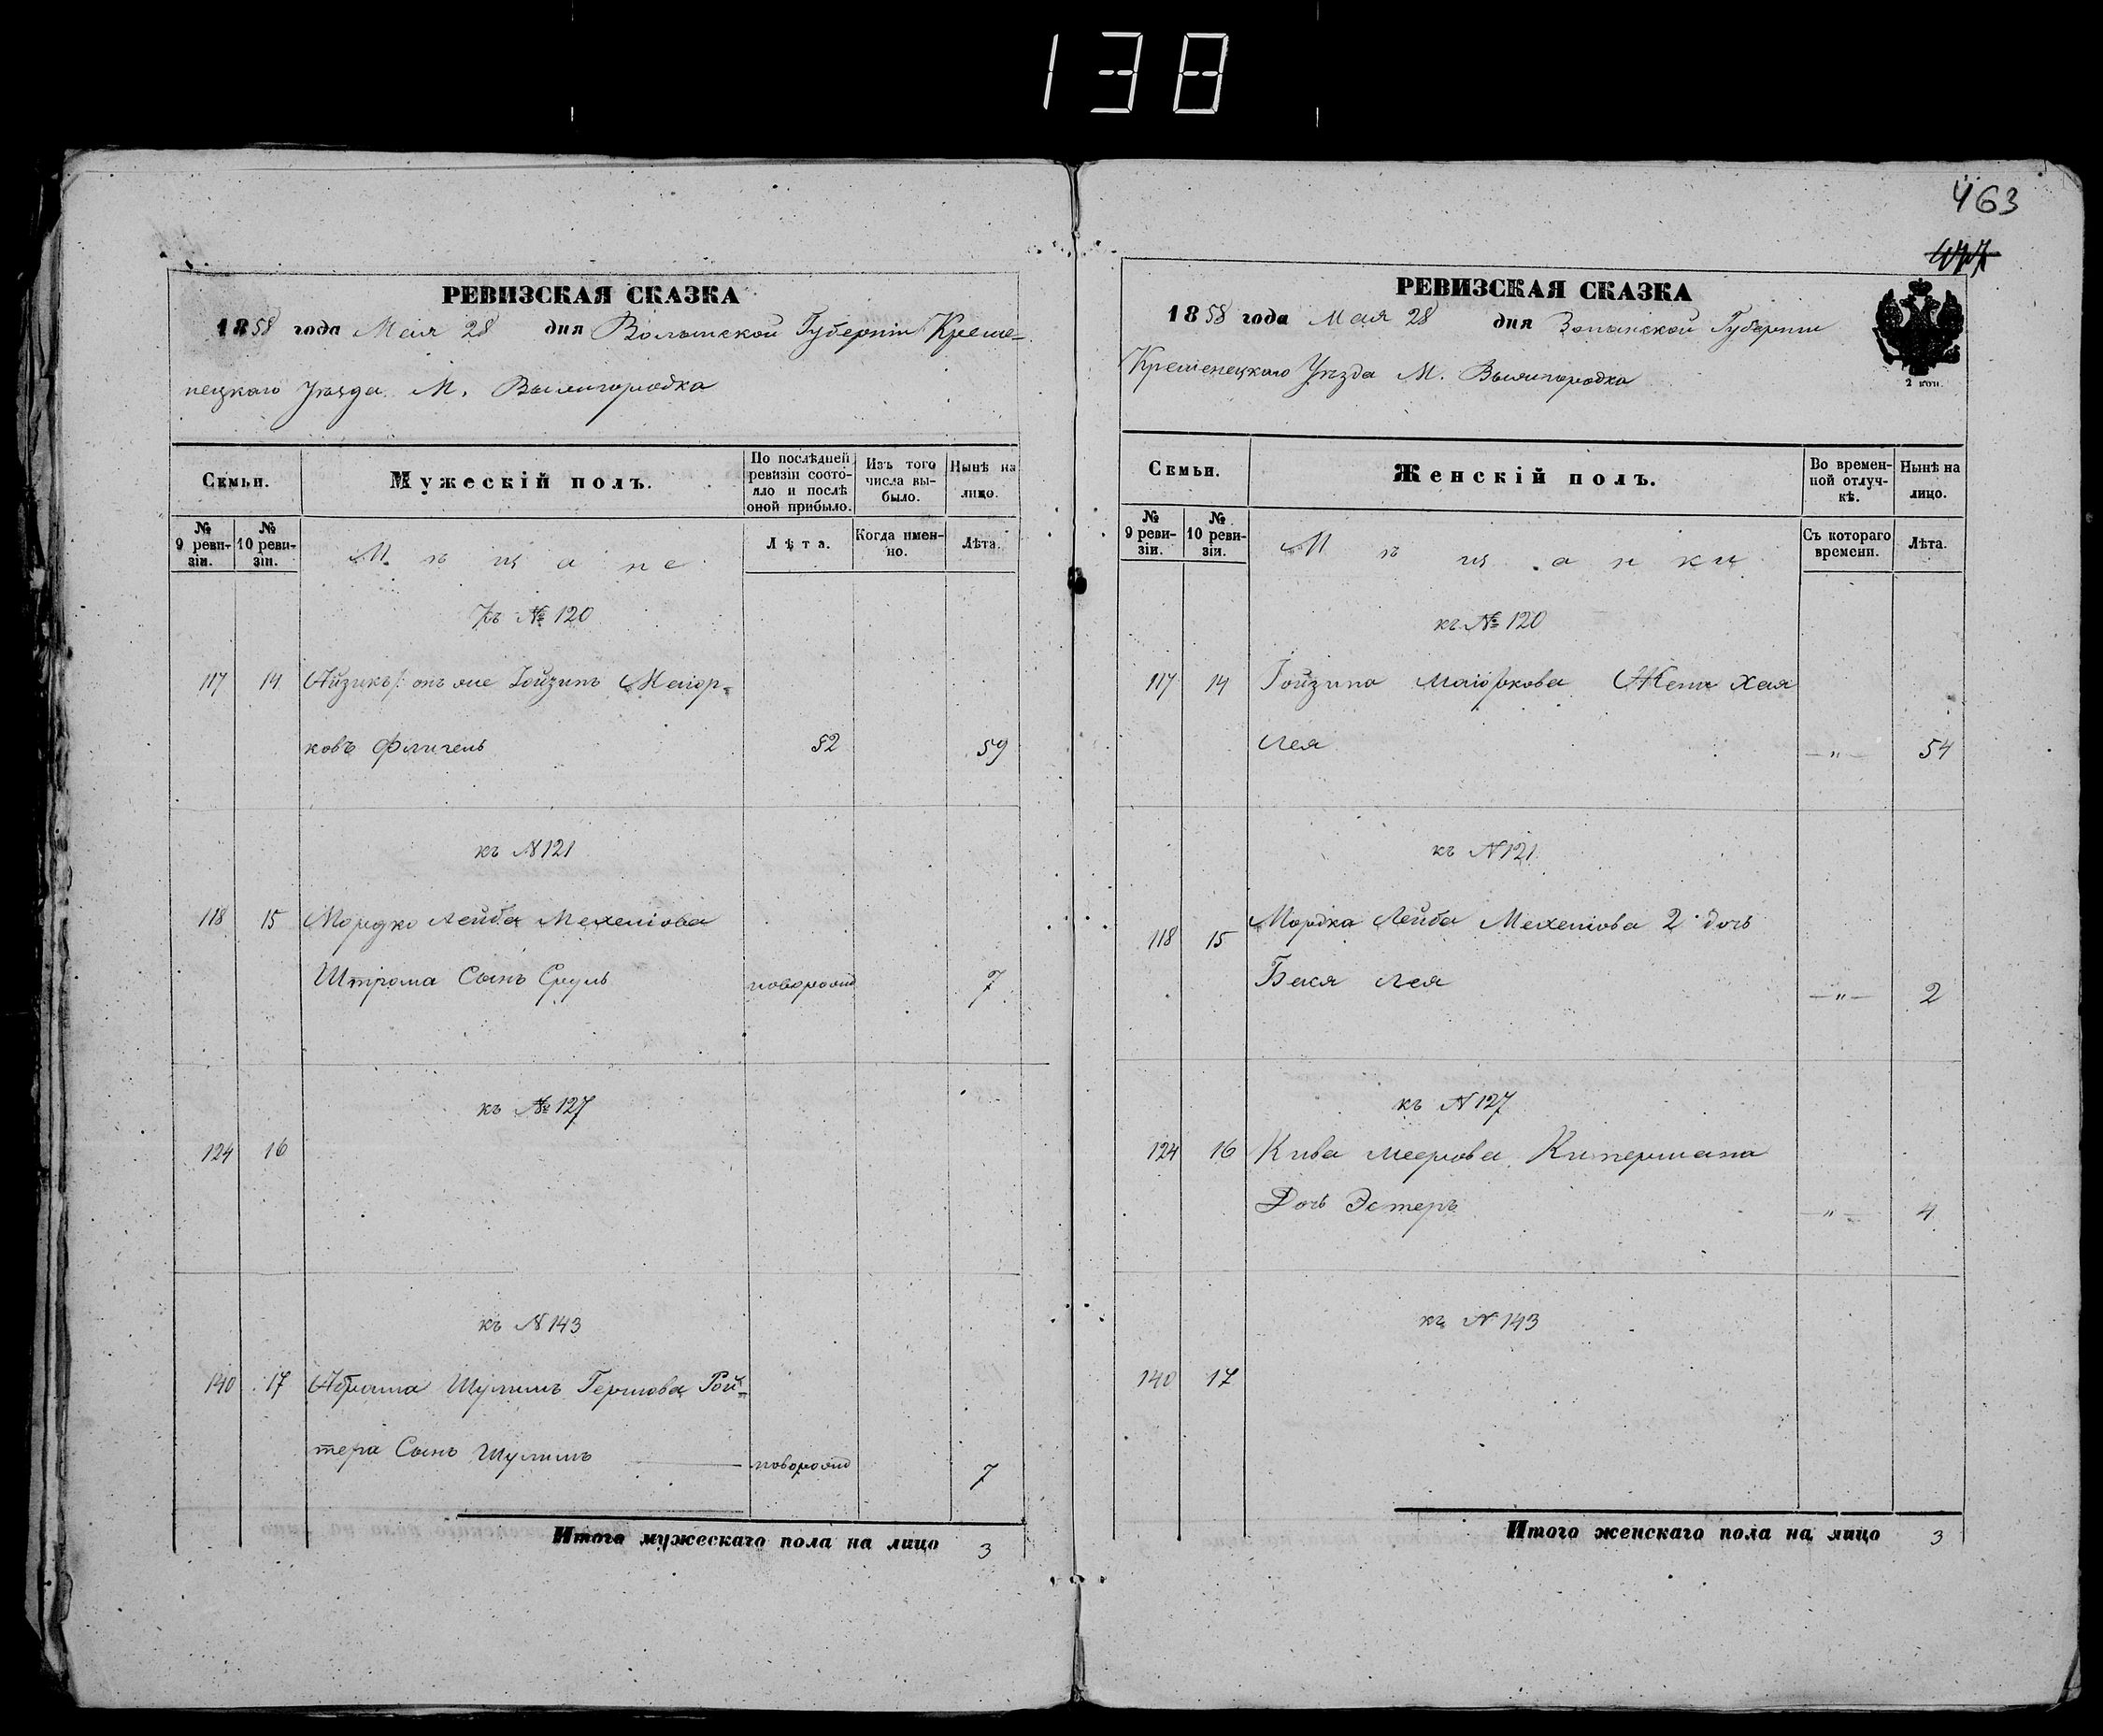 138
463
РЕВИЗСКАЯ СКАЗКА
1858 года Мая 28 дня Волынской Губернiи Креме-
нецкаго Уѣзда М. Вышгородка
Семьи.
Мужескiй полъ.
По послѣдней ревизiи состо-
яло и послѣ оной прибыло.
Изъ того числа вы-
было.
Нынѣ на лицо.
№ 9 реви-
зiи.
№ 10 реви-
зiи.
Мѣщане
Лѣта.
Когда имен-
но.
Лѣта.
къ № 120
117 14 Айзикъ/: онъ же Іойзипъ Маіор-
ковъ Флигель 52 59
къ N 121
118 15 Мордко Лейба Мехеліова
Штрома Сынъ Сруль новорожд 7
къ № 127
124 16
къ N 143
140 17 Абрама Шулимъ Гершова Рой-
тера Сынъ Шулимъ новорожд 7
Итого мужескаго пола на лицо 3
РЕВИЗСКАЯ СКАЗКА
1858 года Мая 28 дня Волынской Губернiи
Кременецкаго Уѣзда М. Вышгородка
2 коп.
Семьи.
Женскiй полъ.
Во времен-
ной отлуч-
кѣ.
Нынѣ на лицо.
№ 9 реви-
зiи.
№ 10 реви-
зiи.
Мѣщанки
Съ котораго времени.
Лѣта.
къ № 120
117 14 Іойзипа Маіоркова Жена Хая
Лея —"— 54
къ N 121
118 15 Мордка Лейба Мехеліова 2 дочь
Бася Лея —"— 2
къ N 127
124 16 Кива Меерова Кипермана
Дочь Эстеръ —"— 4
къ N 143
140 17
Итого женскаго пола на лицо 3